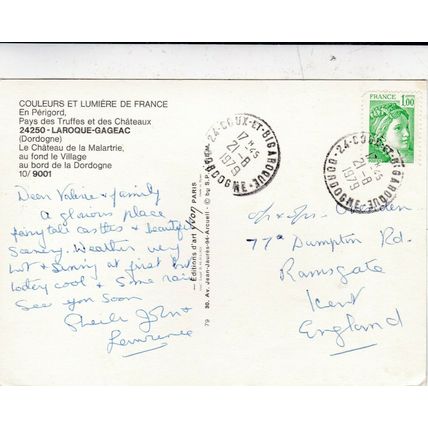 COULEURS ET LUMIÈRE DE FRANCE
En Périgord,
Pays des Truffes et des Châteaux
24250 - LAROQUE-GAGEAC
(Dordogne)
Le Château de la Malartrie,
au fond le Village
au bord de la Dordogne
10/ 9001
Dear Valerie & family
A glorious place
fairytale castles & beautiful
scenery. Weather very
hot & sunny at first but
today cool & some rain
See you soon
Sheila John &
Lawrence
79 30, Av. Jean-Jaurès-94-Arcueil - © by S.P.A.D.E.M.
Éditions d'art yvon PARIS
24-COUX-ET-BIGAROQUE
17H45
21-8
1979
DORDOGNE
FRANCE
1,00
24-COUX-ET-BIGAROQUE
17H45
21-8
1979
DORDOGNE
77a Dumpton Rd.
Ramsgate
Kent
England